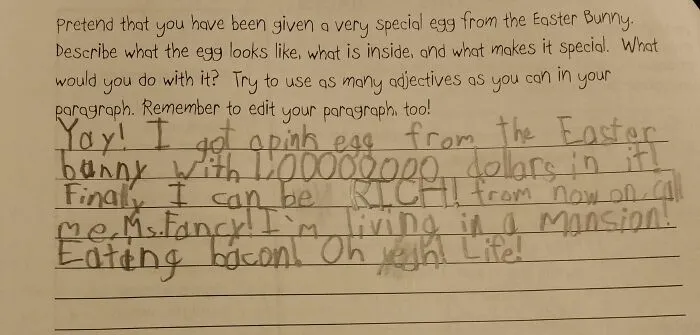 Pretend that you have been given a very special egg from the Easter Bunny.
Describe what the egg looks like, what is inside, and what makes it special. What
would you do with it? Try to use as many adjectives as you can in your
paragraph. Remember to edit your paragraph, too!
Yay! I got a pink egg from the Easter
bunny with 1,00000000 dollars in it!
Finally I can be RICH! from now on, call
me, Ms.Fancy! I'm living in a mansion!
Eateng bacon! Oh yeah! Life!